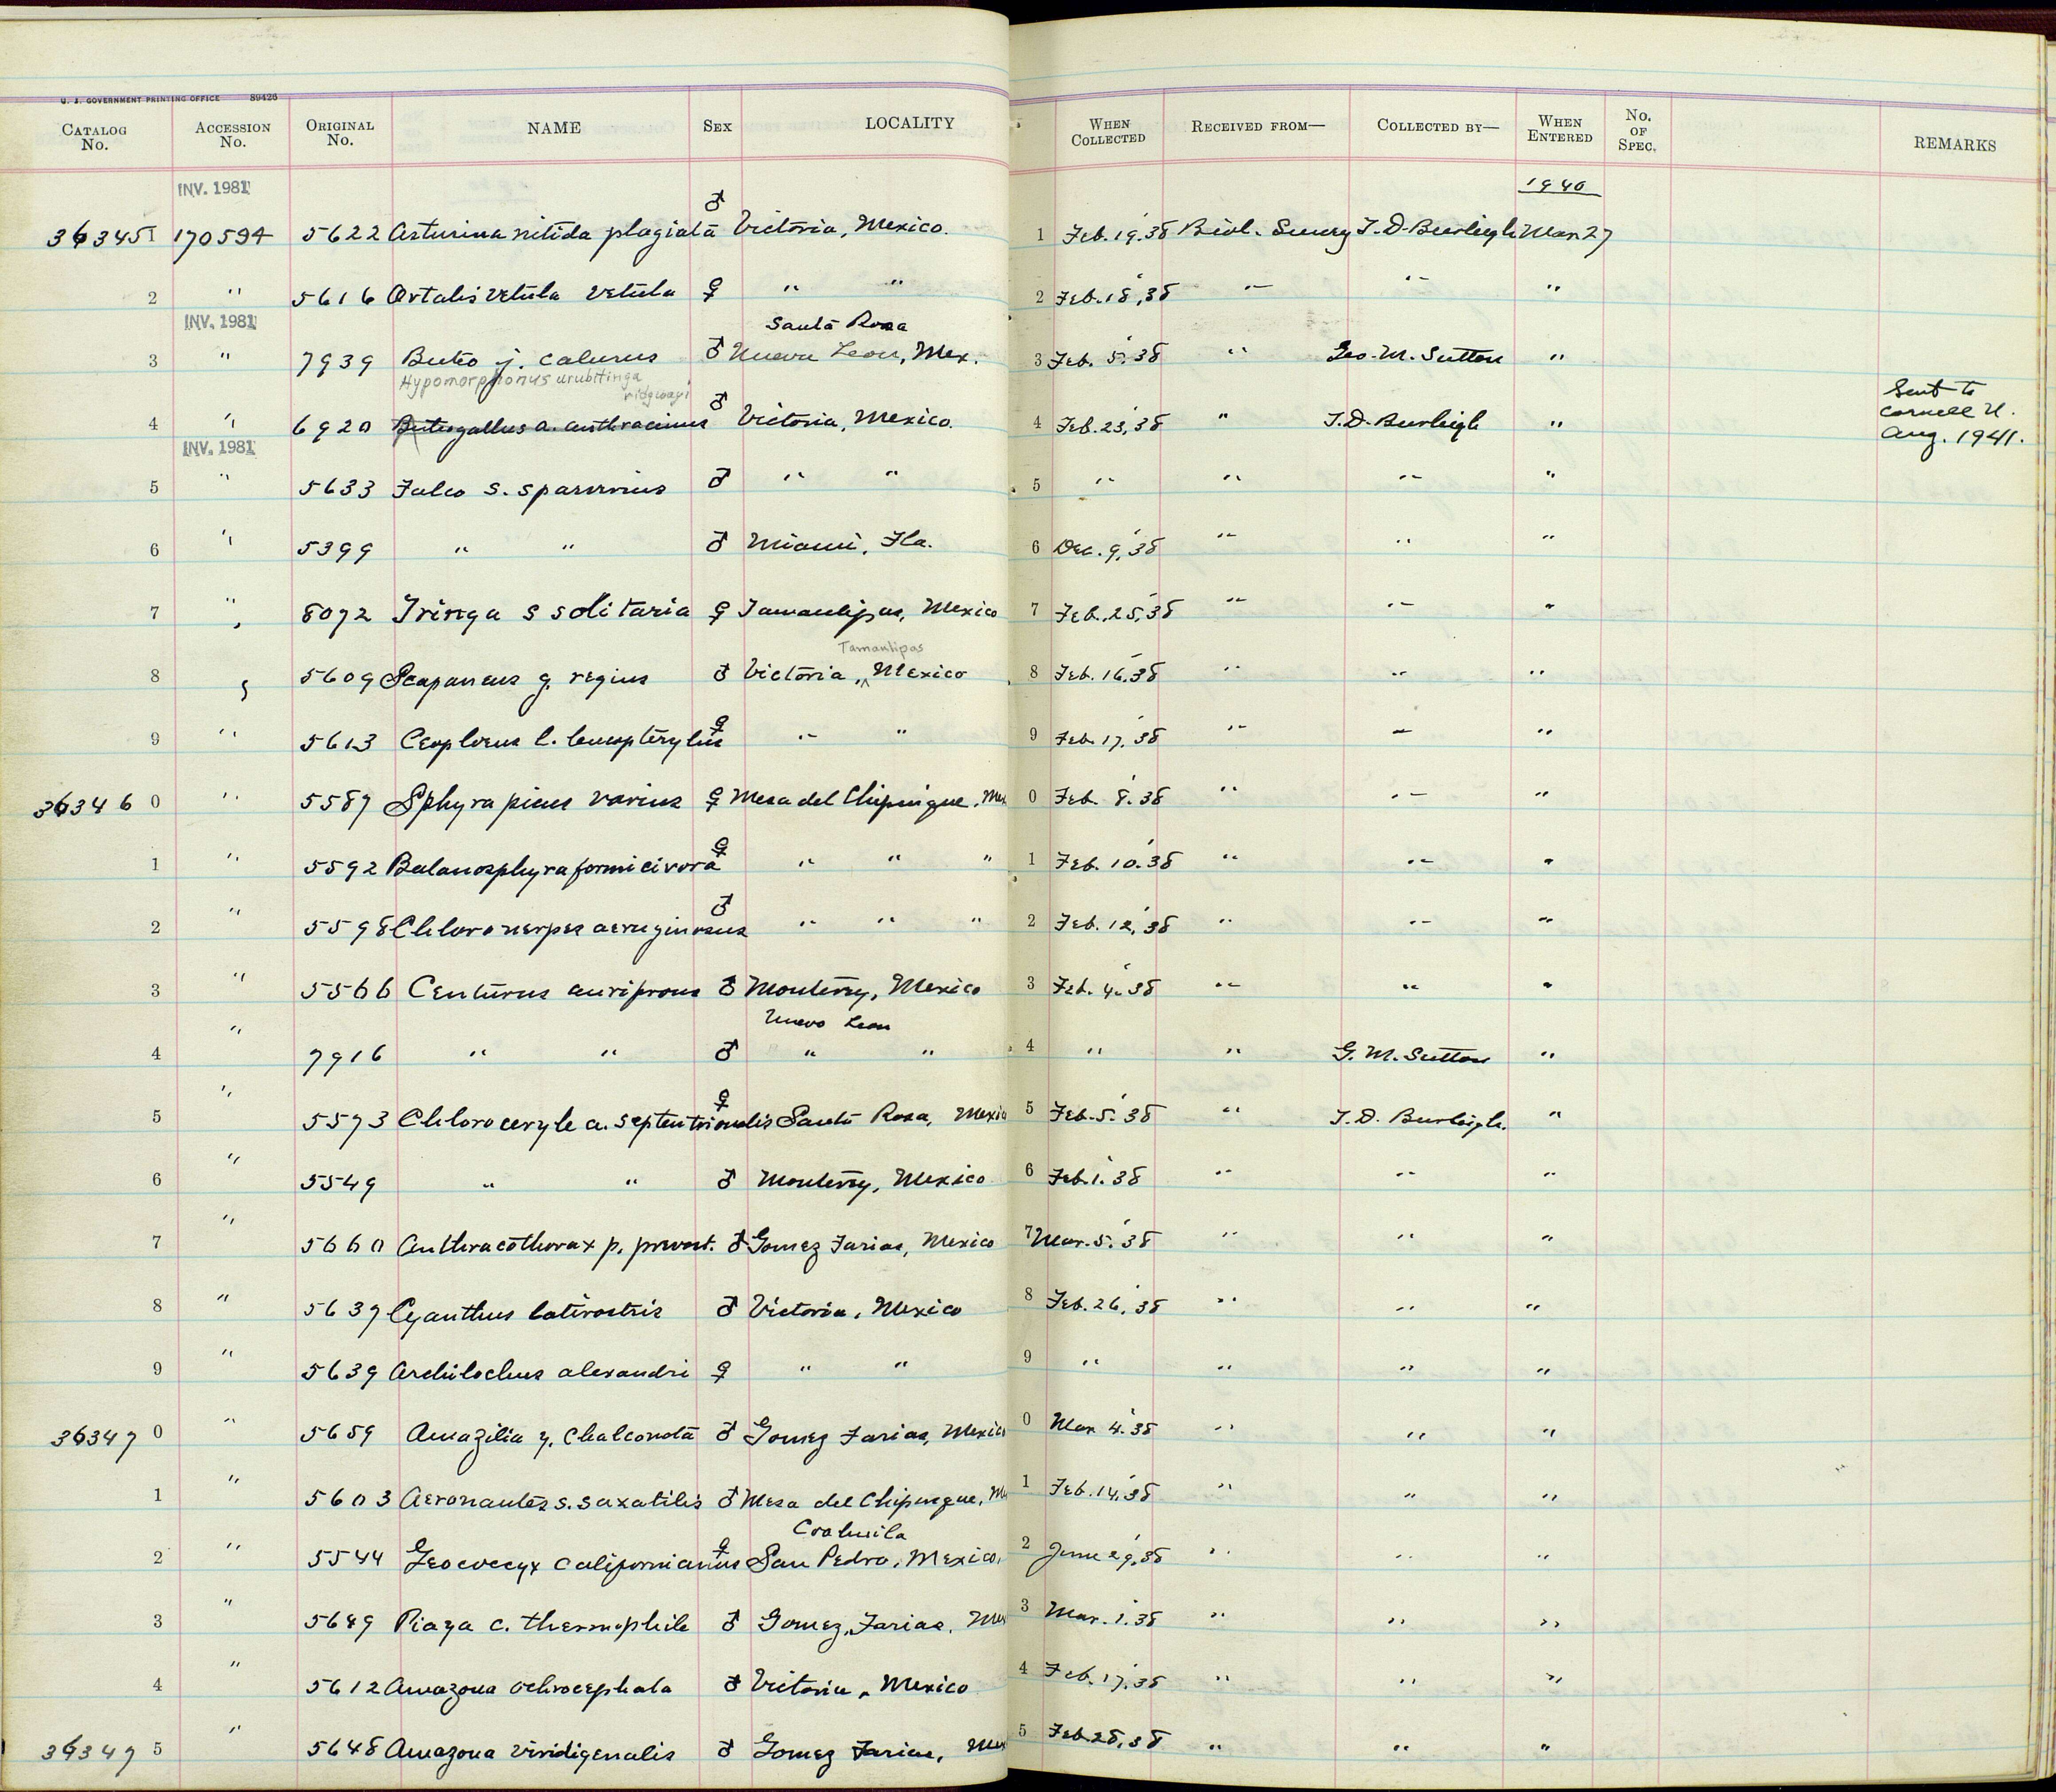 U. S. GOVERNMENT PRINTING OFFICE 89426
CATALOG No. ACCESSION No. ORIGINAL No. NAME SEX LOCALITY WHEN COLLECTED RECEIVED FROM— COLLECTED BY— WHEN ENTERED No. OF SPEC. REMARKS
INV. 1981 1940
363451 170594 5622 Asturina nitida plagiata ♂ Victoria, Mexico. 1 Feb. 19, '38 Biol. Survey T. D. Burleigh Mar. 27
2 " 5616 Ortalis vetula vetula ♀ " " 2 Feb. 18, '38 " " "
INV. 1981 Santa Rosa
3 " 7939 Buteo j. calurus ♂ Nuevo Leon, Mex. 3 Feb. 5, '38 " Geo. M. Sutton "
Hypomorphnus urubitinga ridgwayi
4 " 6920 Buteogallus a. anthracinus ♂ Victoria, Mexico. 4 Feb. 23, '38 " T. D. Burleigh " Sent to Cornell U. Aug. 1941.
INV. 1981
5 " 5633 Falco s. sparverius ♂ " " 5 " " " "
6 " 5399 " " ♂ Miami, Fla. 6 Dec. 9, '38 " " "
7 " 8072 Tringa s solitaria ♀ Tamaulipas, Mexico 7 Feb. 25, '38 " " "
Tamaulipas
8 " 5609 Scapaneus g. regius ♂ Victoria, ^ Mexico 8 Feb. 16, '38 " " "
9 " 5613 Ceophloeus l. ♀ " " 9 Feb. 17, '38 " " "
363460 " 5587 Sphyrapicus varius ♀ Mesa del Chipinque, Mex 0 Feb. 8, '38 " " "
1 " 5592 Balanosphyra formicivora ♀ " " " 1 Feb. 10, '38 " " "
2 " 5598 Chloronerpes aeruginosus ♂ " " " 2 Feb. 12, '38 " " "
3 " 5566 Centurus aurifrons ♂ Monterrey, Mexico 3 Feb. 4, '38 " " "
Nuevo Leon
4 " 7916 " " ♂ " " 4 " " G. M. Sutton "
5 " 5573 Chloroceryle a. septentrionalis ♀ Santa Rosa, Mexico 5 Feb. 5, '38 " T. D. Burleigh. "
6 " 5549 " " ♂ Monterrey, Mexico 6 Feb. 1, '38 " " "
7 " 5660 Anthracothorax p. prevost. ♂ Gomez Farias, Mexico 7 Mar. 5, '38 " " "
8 " 5637 Cyanthus latirostris ♂ Victoria, Mexico 8 Feb. 26, '38 " " "
9 " 5639 Archilochus alexandri ♀ " " 9 " " " "
363470 " 5659 Amazilia y. chalconota ♂ Gomez Farias, Mexico 0 Mar 4, '38 " " "
1 " 5603 Aeronautes s. saxatilis ♂ Mesa del Chipinque, M 1 Feb. 14, '38 " " "
Coahuila
2 " 5544 Geococcyx californianus ♀ San Pedro, Mexico, 2 29, '38 " " "
3 " 5649 Piaya c. thermophila ♂ Gomez Farias, Mex 3 Mar. 1, '38 " " "
4 " 5612 Amazona ochrocephala ♂ Victoria, Mexico 4 Feb. 17, '38 " " "
363475 " 5648 Amazona viridigenalis ♂ Gomez Farias, Mex 5 Feb. 28, '38 " " "